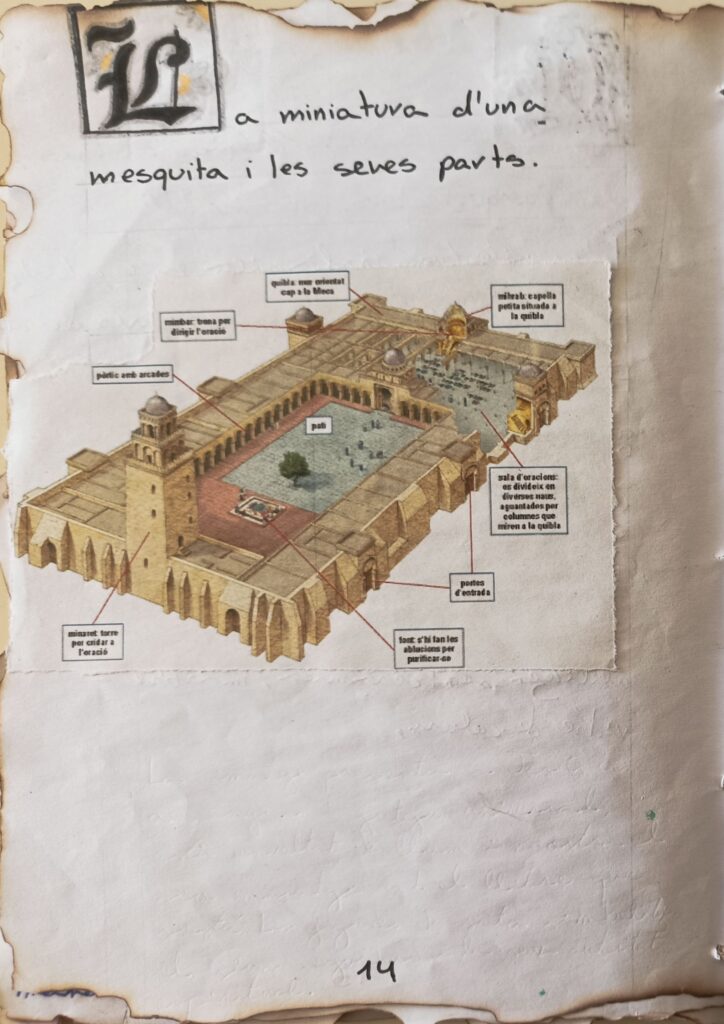 La miniatura d'una
mesquita i les seves parts.
quibla: mur orientat
cap a la Meca
mihrab: capella
petita situada a
la quibla
mimbar: trona per
dirigir l'oració
pòrtic amb arcades
pati
sala d'oracions:
es divideix en
diverses naus,
aguantades per
columnes que
miren a la quibla
portes
d'entrada
minaret: torre
per cridar a
l'oració
font: s'hi fan les
ablucions per
purificar-se
14